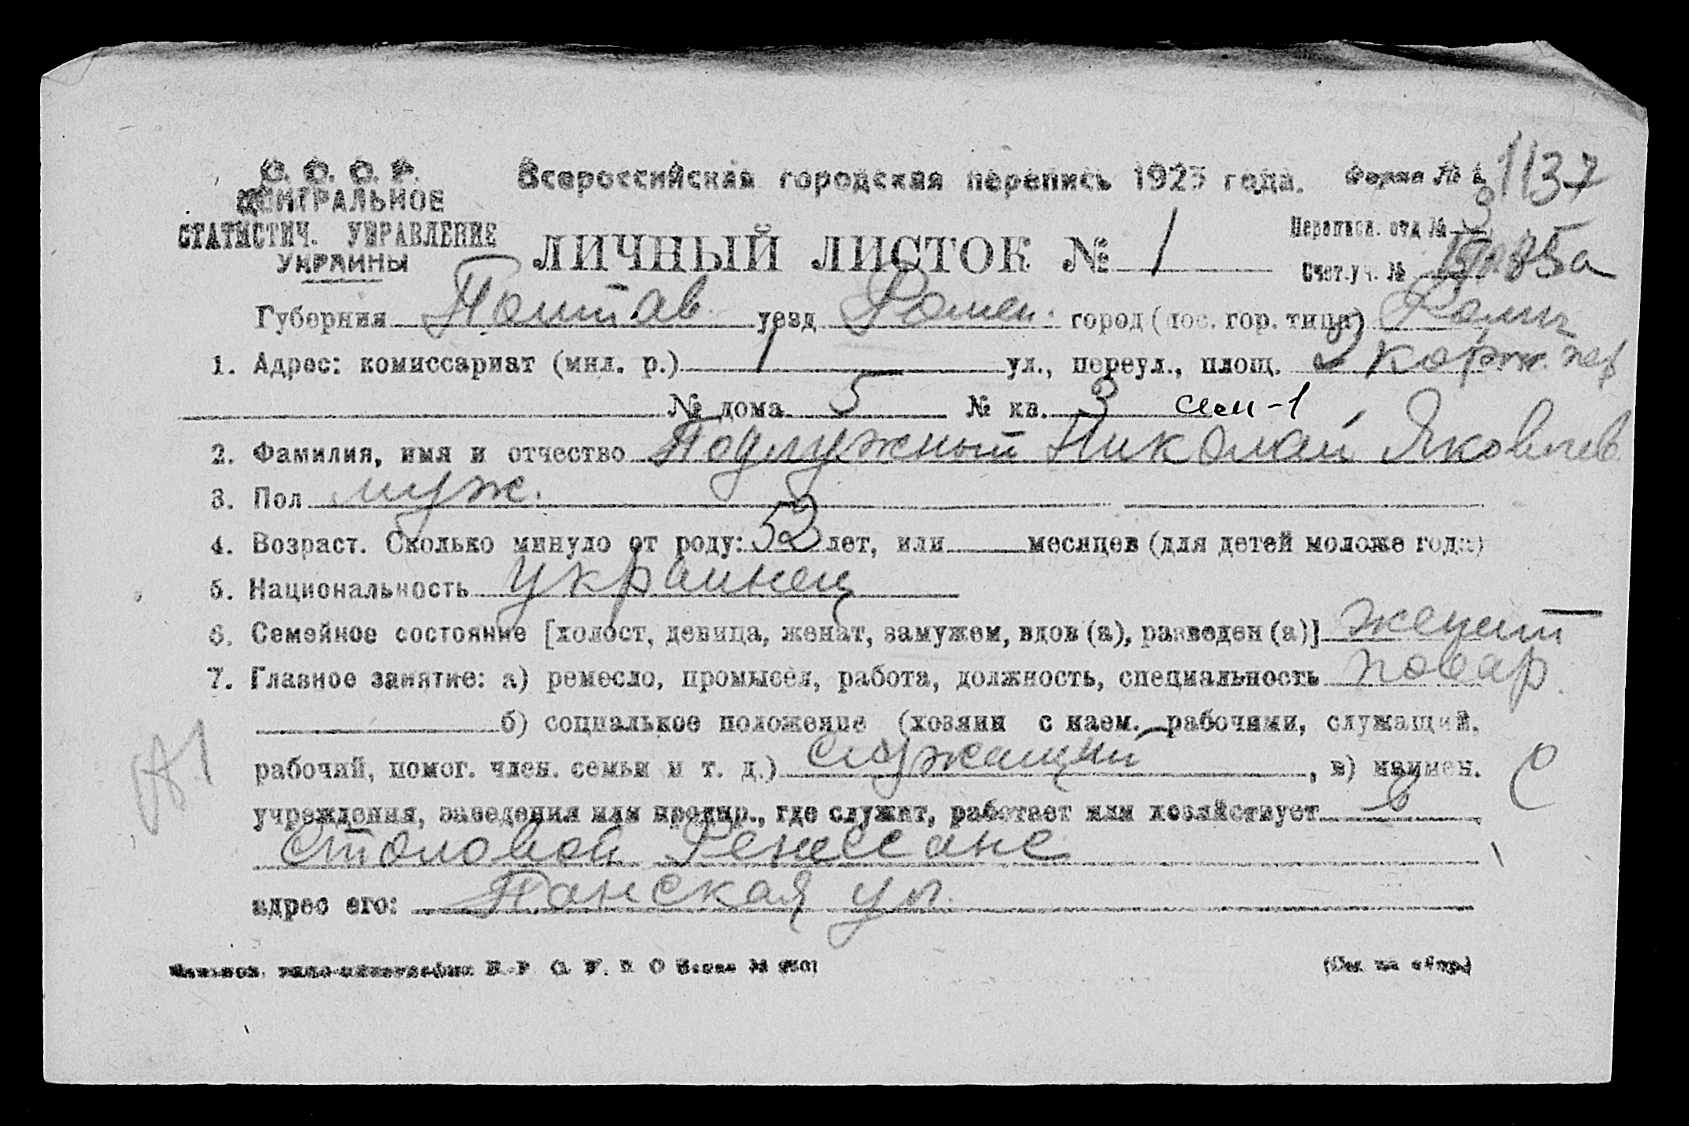 С. С. С. Р.
ЦЕНТРАЛЬНОЕ
СТАТИСТИЧ. УПРАВЛЕНИЕ
УКРАИНЫ
Всероссийская городская перепись 1923 года.
Форма № 1.
1137
Переписн. отд. № 3
ЛИЧНЫЙ ЛИСТОК № 1
Счет. уч. № 85а
Губерния Полтав. уезд Ромен. город (пос. гор. типа) Ромны
1. Адрес: комиссариат (мил. р.) 1 ул., переул., площ. 2 Корж. пер
№ дома 5 № кв. 3 сем-1
2. Фамилия, имя и отчество Подлужный Николай Яковлев.
3. Пол муж.
4. Возраст. Сколько минуло от роду: 52 лет, или месяцев (для детей моложе года)
5. Национальность украинец
6. Семейное состояние [холост, девица, женат, замужем, вдов (а), разведен (а)] женат
7. Главное занятие: а) ремесло, промысел, работа, должность, специальность повар.
б) социальное положение (хозяин с наем. рабочими, служащий,
рабочий, помог. член. семьи и т. д.) служащий, в) наимен.
учреждения, заведения или предпр., где служит, работает или хозяйствует в
столовой Ренессанс
адрес его: Панская ул.
(См. на обор.)